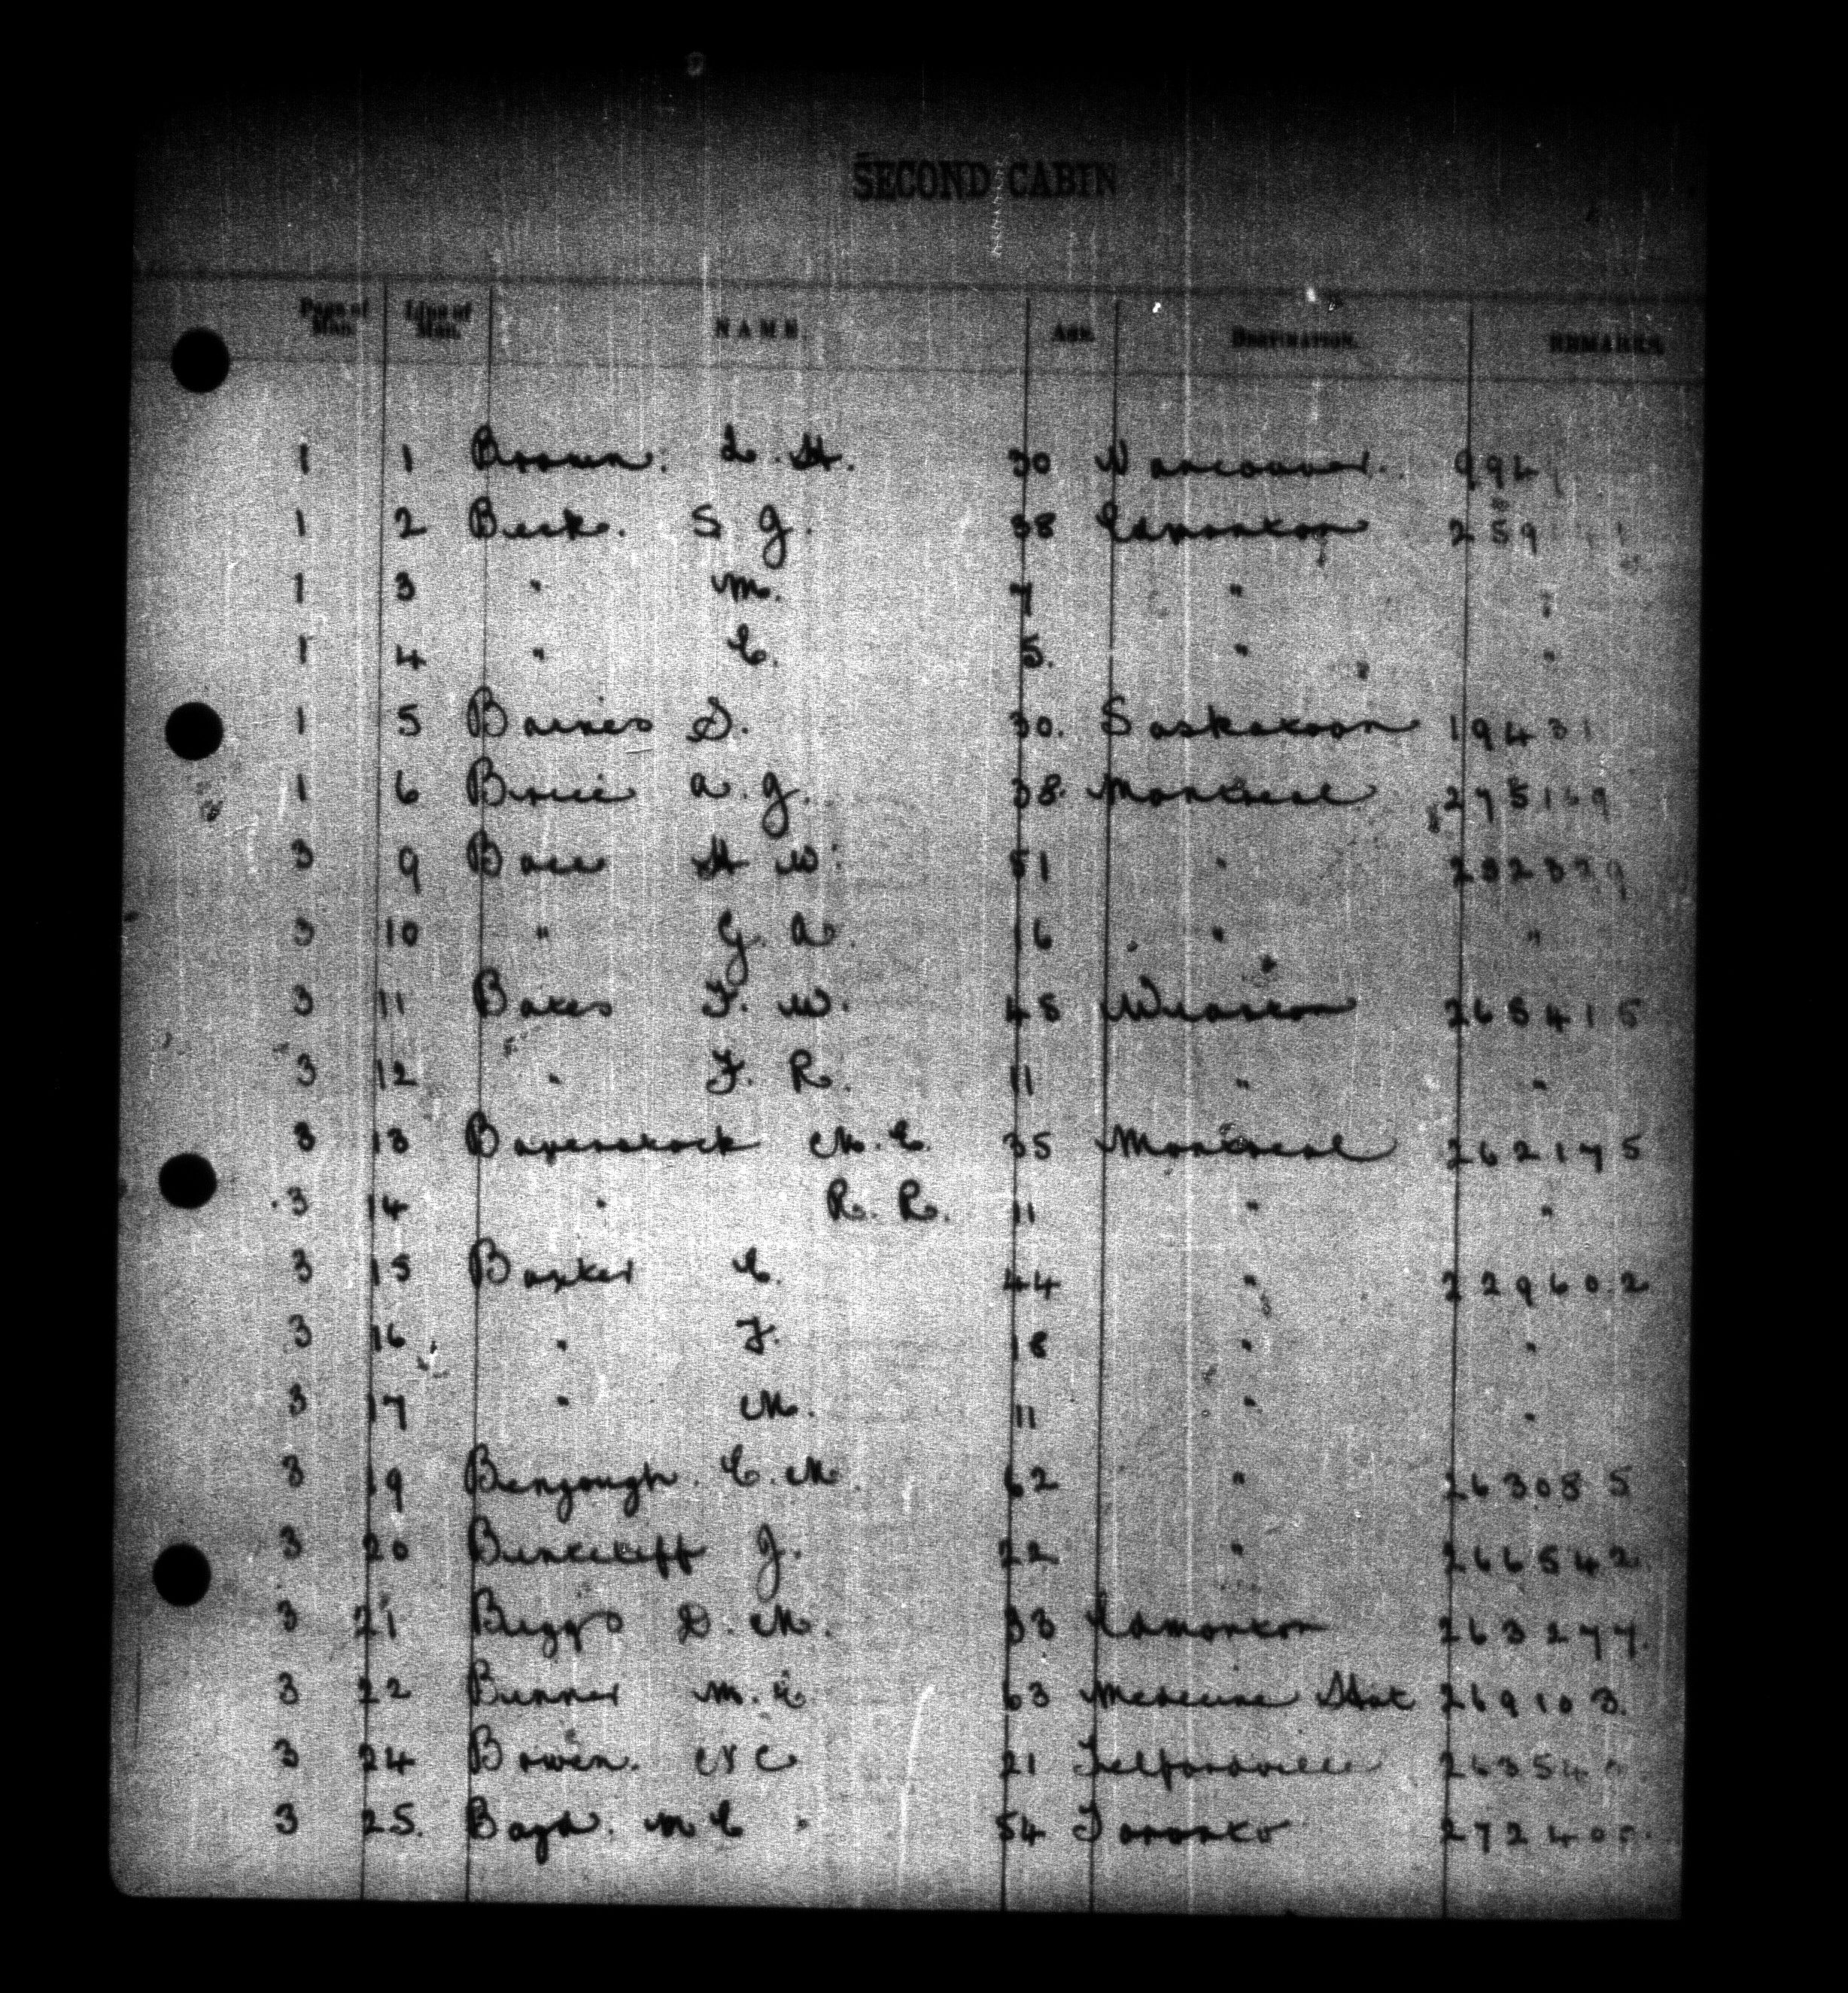 SECOND CABIN
Page of Man. Line of Man. NAME. AGE. DESTINATION. REMARKS.
1 1 Brown. L. H. 30 Vancouver. 994
1 2 Beck. S J. 38 Edmonton 259
1 3 " M. 7 " "
1 4 " E. 5. " "
1 5 Baines D. 30. Saskatoon 19431
1 6 A. J. 38. Montreal 275169
3 9 H W. 51 "
3 10 " G. A. 16 " "
3 11 Bates F. W. 48 Wiarton 265415
3 12 " F. R. 11 " "
3 13 Baverstock M. E. 35 Montreal 262175
3 14 " R. R. 11 " "
3 15 Baxter E. 44 " 229602
3 16 " F. 18 " "
3 17 " M. 11 " "
3 19 Bengough. E. M. 62 " 263085
3 20 J. 22 " 266542
3 21 Biggs D. M. 33 Edmonton 263277.
3 22 M. E. 63 Medicine Hat 269103.
3 24 Bowen. 21 Telfordville
3 25. M E 54 Toronto